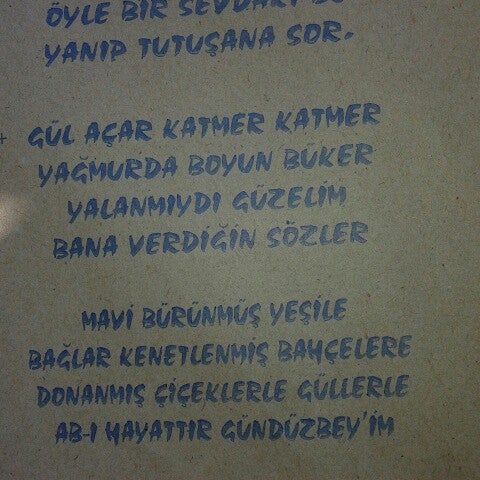 ÖYLE BİR SEVDAKİ
YANIP TUTUŞANA SOR.
GÜL AÇAR KATMER KATMER
YAĞMURDA BOYUN BÜKER
YALANMIYDI GÜZELİM
BANA VERDİĞİN SÖZLER
MAVİ BÜRÜNMÜŞ YEŞİLE
BAĞLAR KENETLENMİŞ BAHÇELERE
DONANMIŞ ÇİÇEKLERLE GÜLLERLE
AB-I HAYATTIR GÜNDÜZBEY'İM